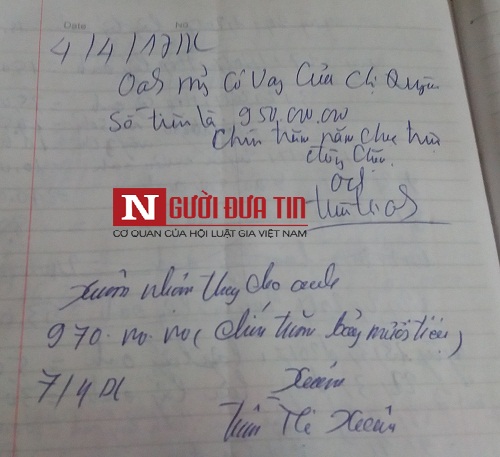 Date No.
4/4/17ĐL
Oanh Mỹ Có Vay Của Chị Quyên
Số tiền là 950.000.000
Chín trăm năm chục triệu
đồng Chẵn.
NGƯỜI ĐƯA TIN
CƠ QUAN CỦA HỘI LUẬT GIA VIỆT NAM
Xuân nhận thay cho oanh
970.000.000 (chín trăm bảy mươi triệu)
7/4 ĐL
Xuân
Trần Thị Xuân